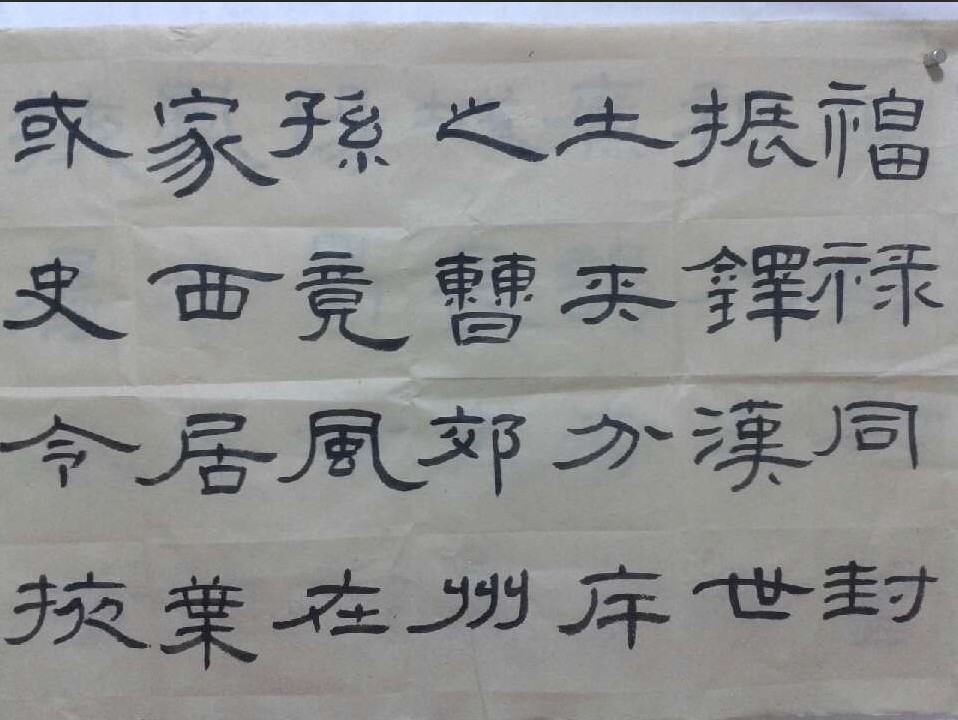 福禄同封
振鐸漢世
土夾分斥
之曹郊州
孫竟風在
家西居葉
或史令掖